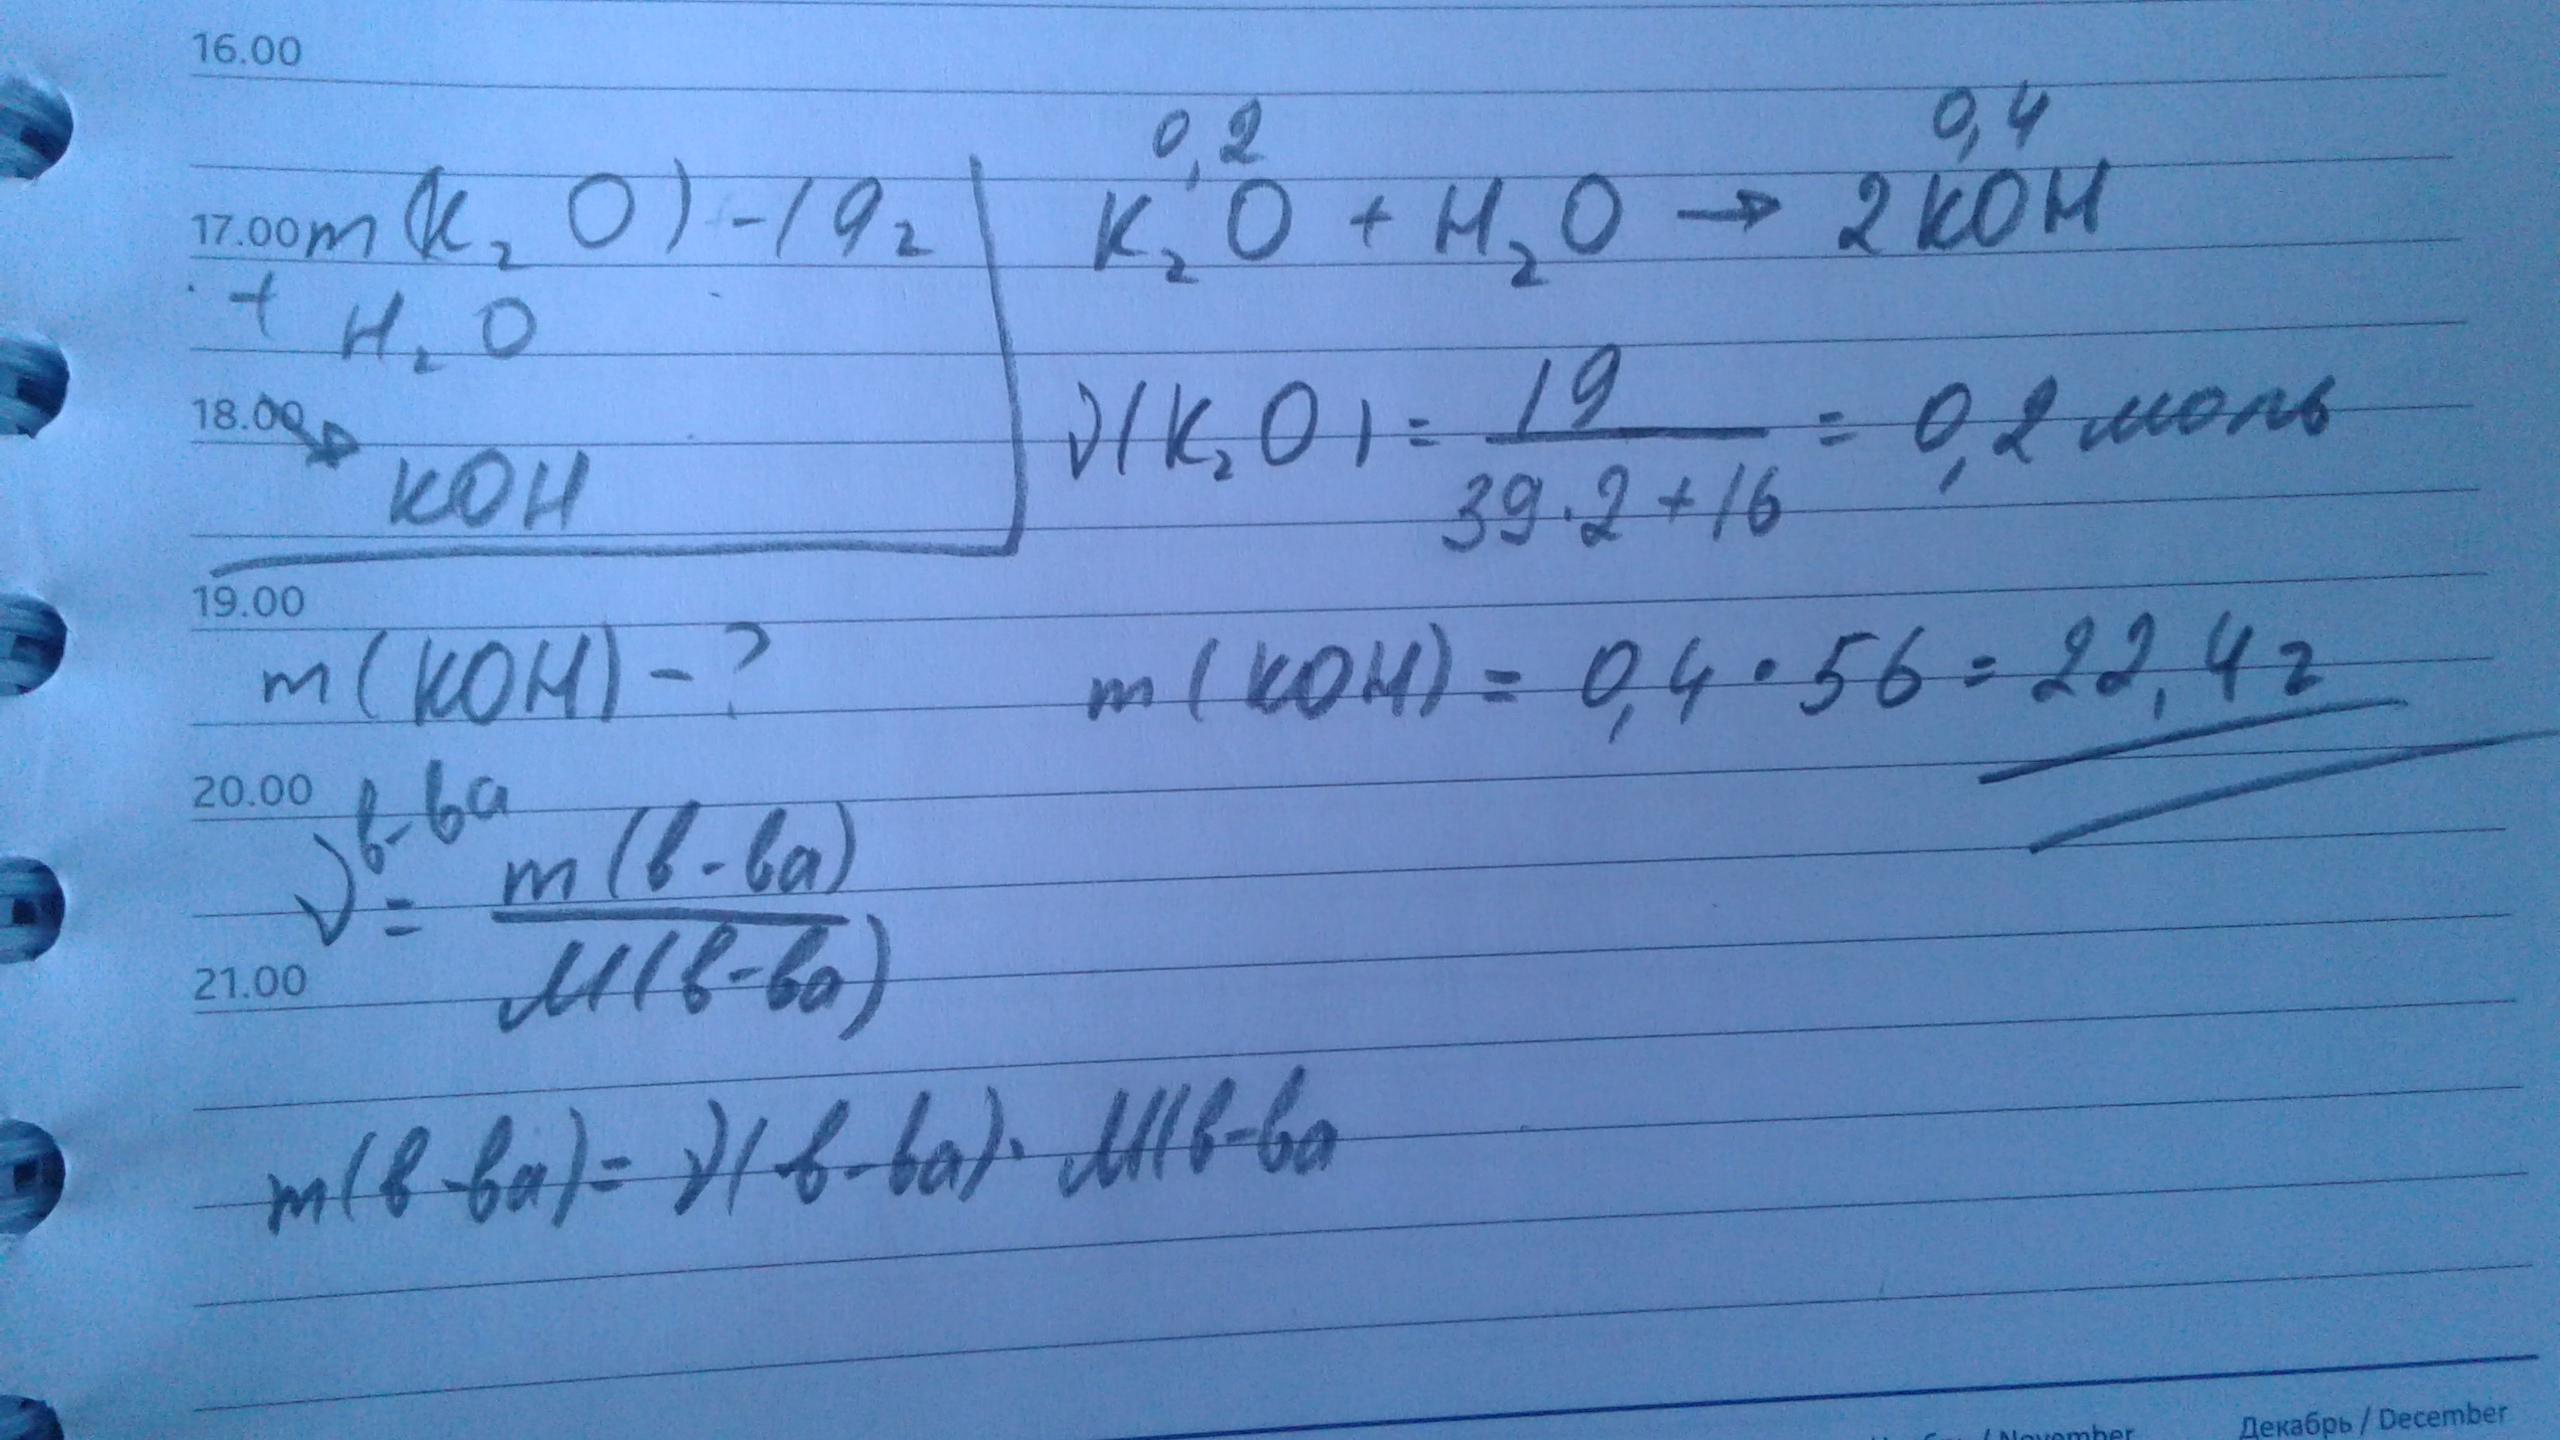 16.00
0,2 0,4
17.00 m(K₂O) - 19г K₂O + H₂O → 2KOH
+ H₂O
18.00 → KOH ν(K₂O) = 19 / 39·2+16 = 0,2 моль
19.00
m(KOH) - ? m(KOH) = 0,4 · 56 = 22,4г
20.00
ν в-ва = m(в-ва) / M(в-ва)
21.00
m(в-ва) = ν(в-ва) · M(в-ва
/ November Декабрь / December